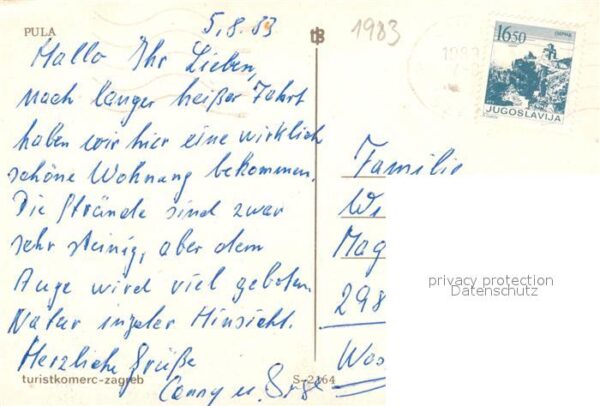 PULA
5.8.83
Hallo Ihr Lieben,
nach langer heißer Fahrt
haben wir hier eine wirklich
schöne Wohnung bekommen.
Die Strände sind zwar
sehr steinig, aber dem
Auge wird viel geboten
Natur in Hinsicht.
Herzliche Grüße
Conny u.
turistkomerc-zagreb
S-2164
tB
1983
16.50
JUGOSLAVIJA
Familie
We
Mag
298
Was
privacy protection
Datenschutz